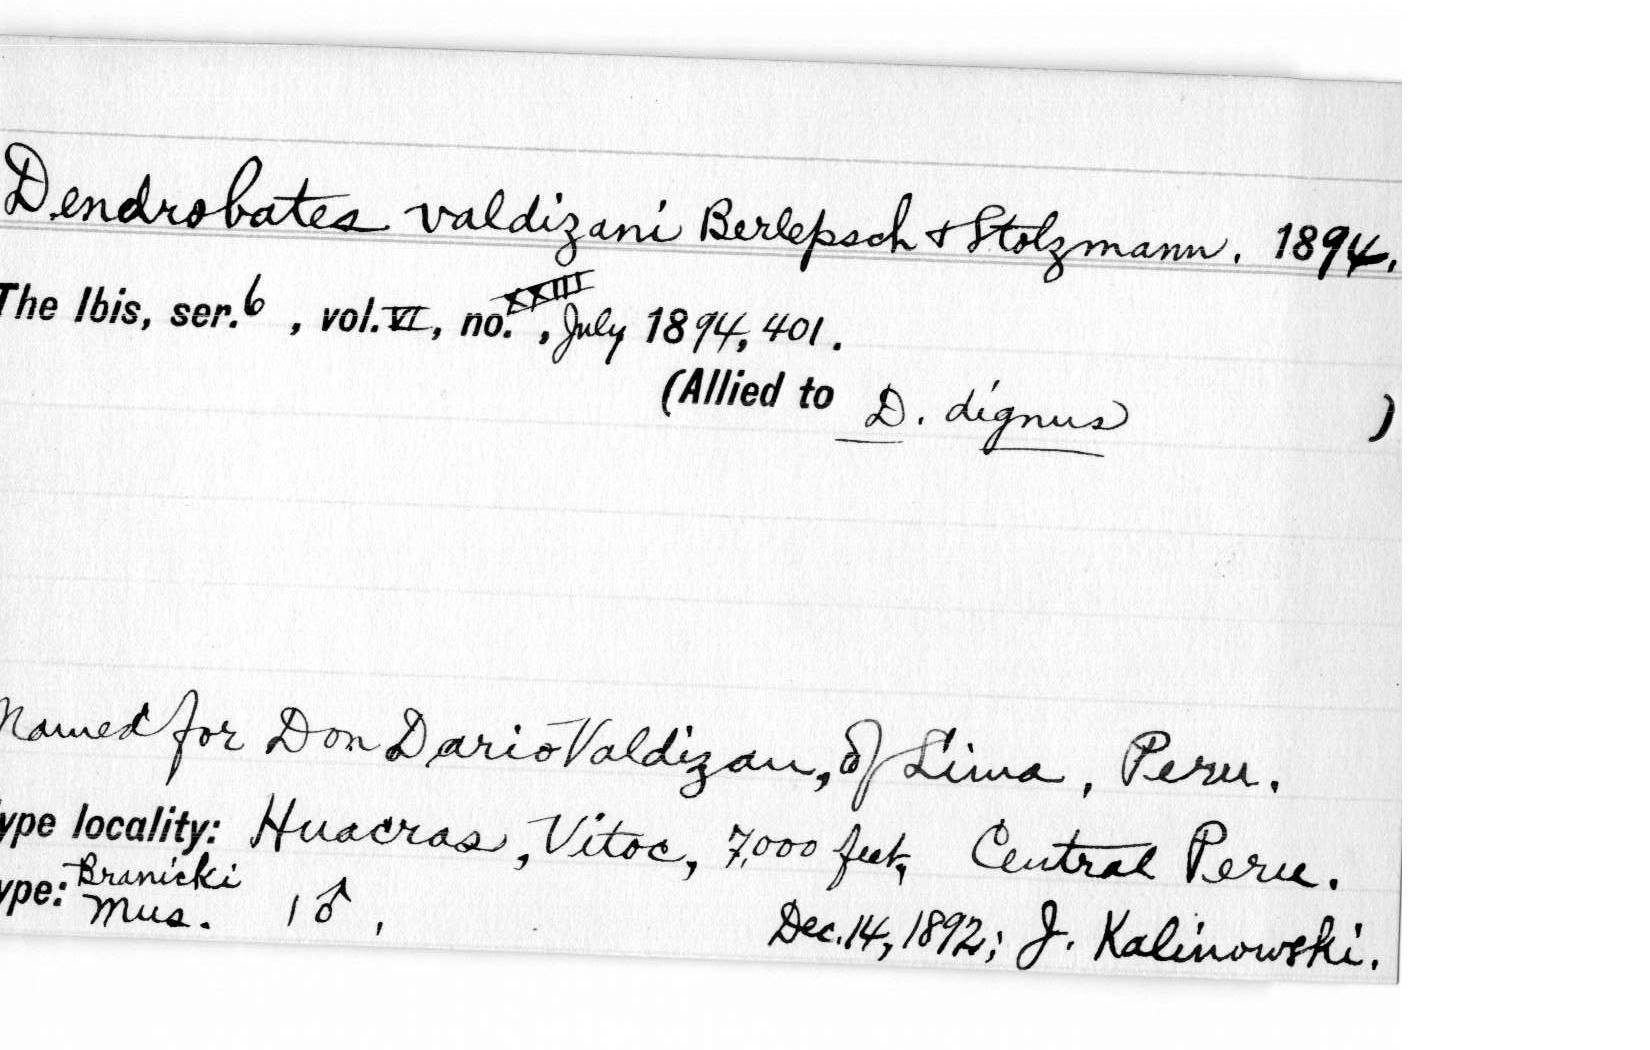 Dendrobates valdizani Berlepsch & Stolzmann. 1894.
The Ibis, ser. 6, vol. VI, no. XXIII, July 1894, 401.
(Allied to D. dignus )
Named for Don Dario Valdizan, of Lima, Peru.
ype locality: Huacras, Vitoc, 7,000 feet, Central Peru.
ype: Branicki Mus. 1♂, Dec. 14, 1892; J. Kalinowski.